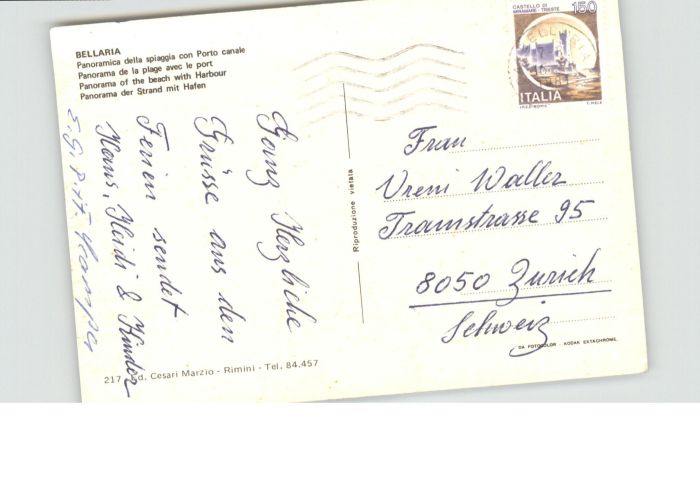 BELLARIA
Panoramica della spiaggia con Porto canale
Panorama de la plage avec le port
Panorama of the beach with Harbour
Panorama der Strand mit Hafen
CASTELLO DI
MIRAMARE - TRIESTE
150
ITALIA
Ganz Herzliche
Grüsse aus den
Ferien sendet
Hans, Heidi & Kinder
Riproduzione vietata
Frau
Vreni Waller
Tramstrasse 95
8050 Zürich
Schweiz
DA FOTOCOLOR KODAK EKTACHROME
217 Ed. Cesari Marzio - Rimini - Tel. 84.457